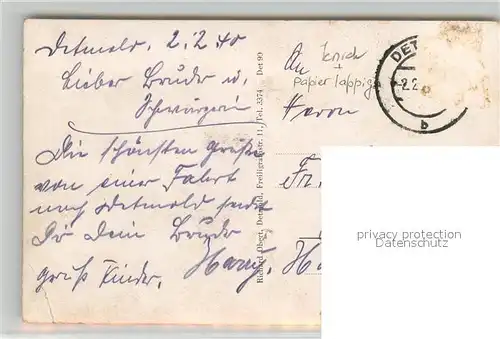 Detmold. 2.2.40
Lieber Bruder u.
Schwägerin
Die schönsten Grüße
von einer Fahrt
nach Detmold sendet
Dir Dein Bruder
Harry.
Gruß Kinder.
Richard Obert, Detmold, Freiligrathstr. 11, Tel. 3574 Det 90
An
Knick
+
Papier lappig
Herrn
Fr.
H
DET
2.2
b
privacy protection
Datenschutz